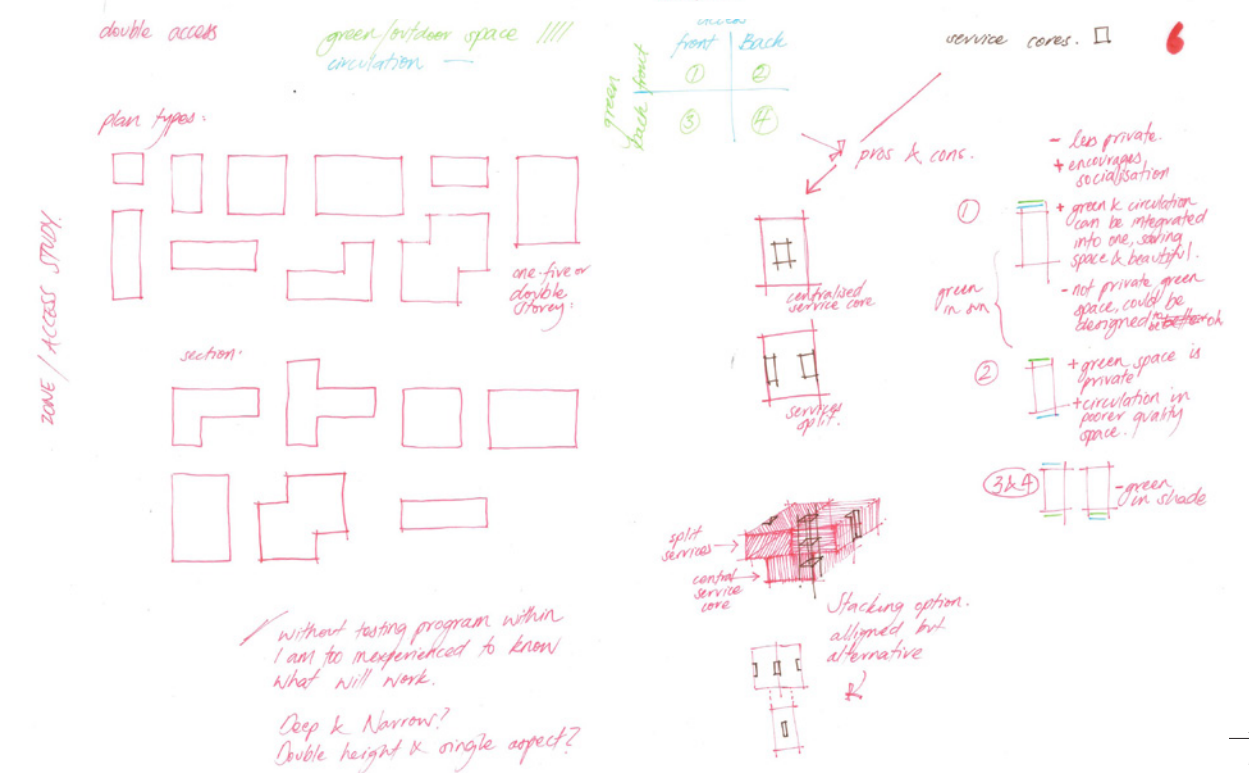 double access
green/outdoor space ////
circulation —
plan types:
ZONE / ACCESS STUDY.
one-five or
double
storey:
section:
without testing program within
I am too inexperienced to know
what will work.
Deep & Narrow?
Double height & single aspect?
front Back
green
front
back
① ②
③ ④
service cores.
6
pros & cons.
centralised
service core
services
split.
split
services
central
service
core
Stacking option.
alligned but
alternative
- less private.
+ encourages
socialisation
①
+ green & circulation
can be integrated
into one, saving
space & beautiful.
- not private green
space, could be
designed to be oh.
green
in sun
②
+ green space is
private
+ circulation in
poorer quality
space.
3&4
- green
in shade